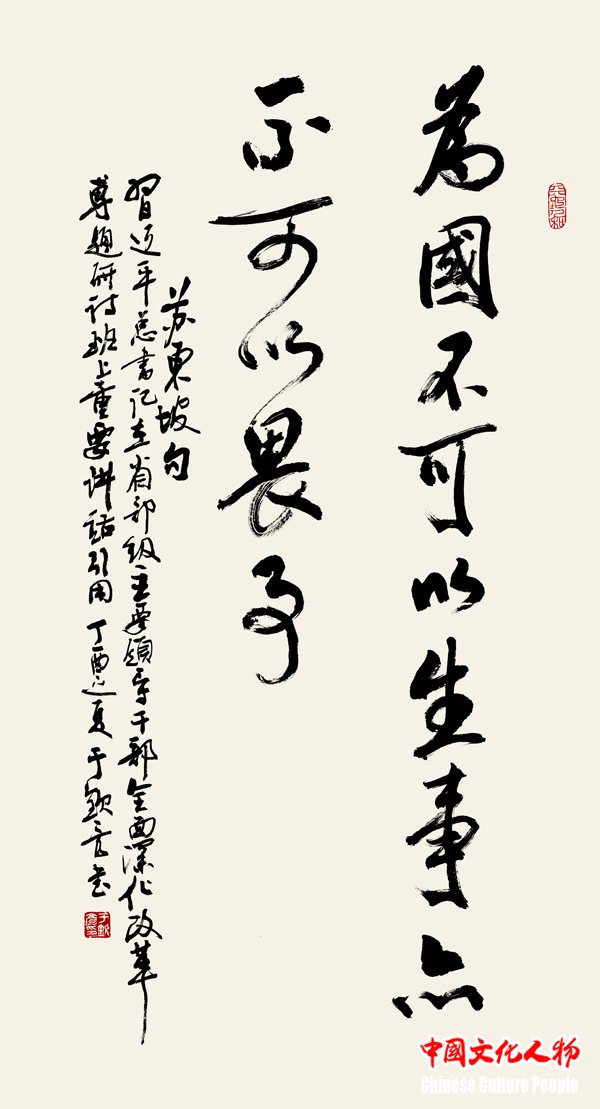 為國不可以生事亦
不可以畏事
苏東坡句
習近平总書记在省部级主要领导干部全面深化改革
專題研討班上重要讲話引用 丁酉之夏 于欽彦书
中國文化人物
Chinese Culture People